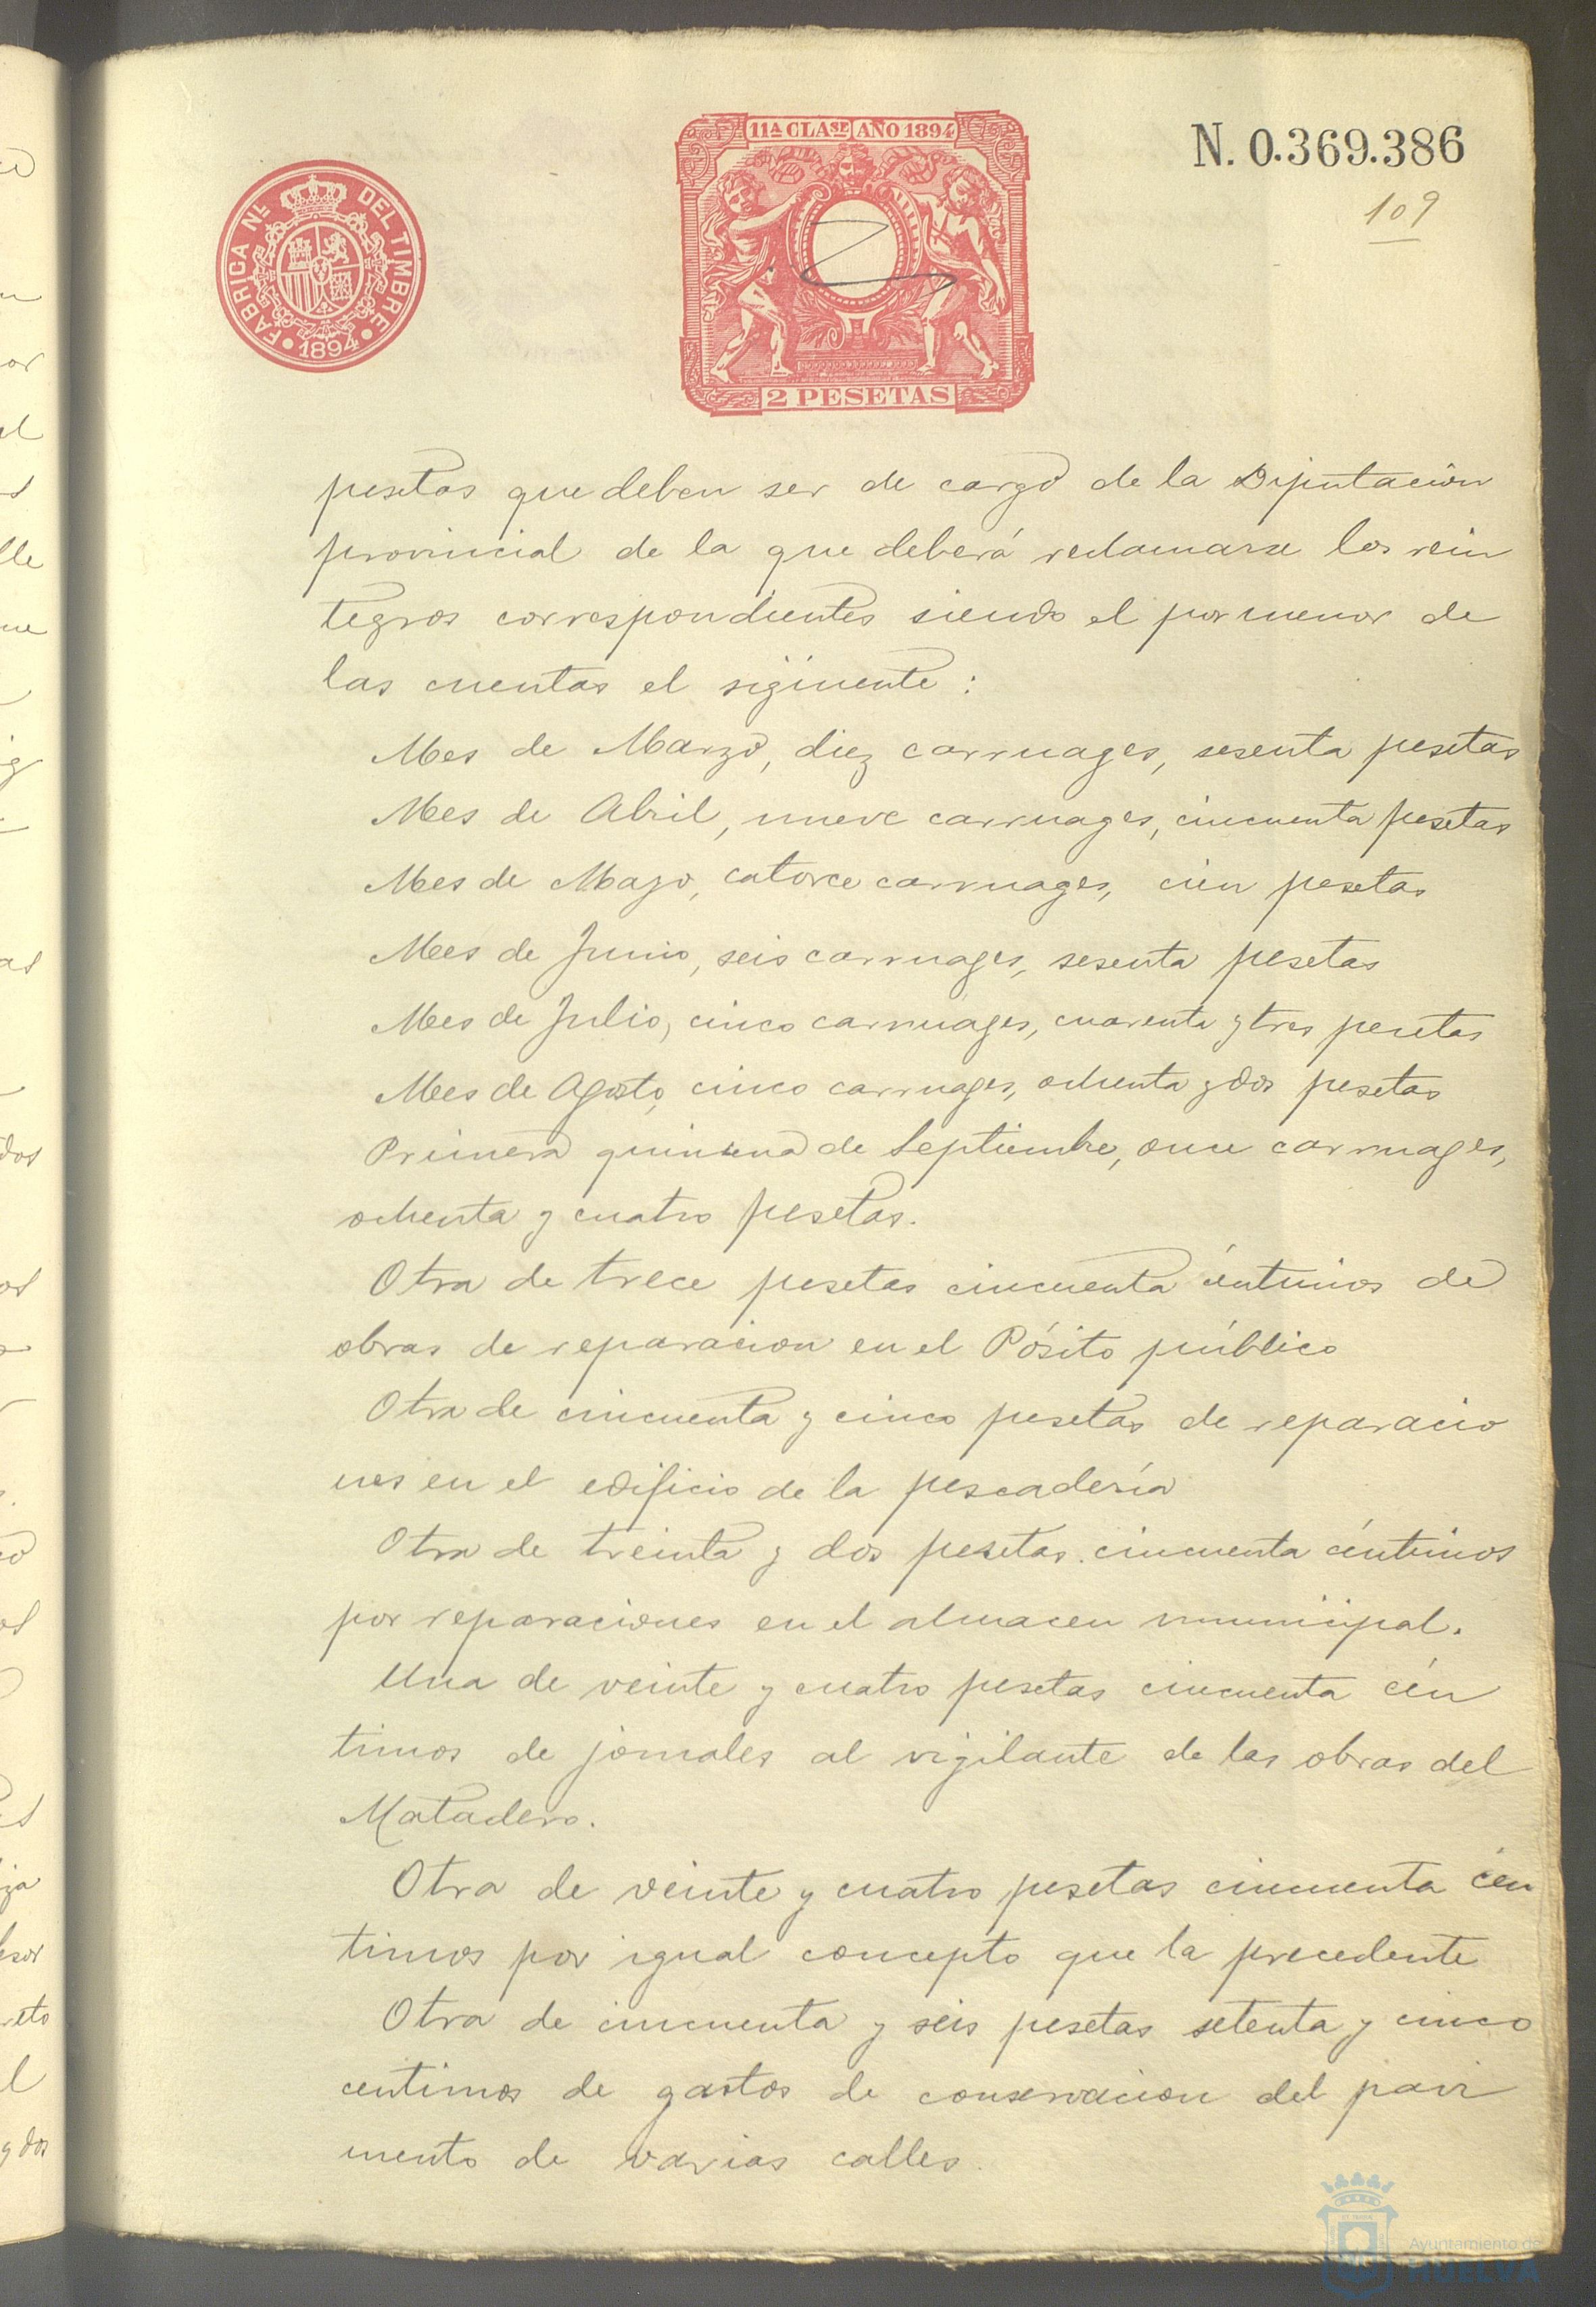 11A CLASE AÑO 1894
N. 0.369.386
109
FABRICA NL. DEL TIMBRE
1894
2 PESETAS
pesetas que deben ser de cargo de la Diputación
provincial de la que deberá reclamarse los rein
tegros correspondientes siendo el pormenor de
las cuentas el siguiente:
Mes de Marzo, diez carruages, sesenta pesetas
Mes de Abril, nueve carruages, cincuenta pesetas
Mes de Mayo, catorce carruages, cien pesetas
Mes de Junio, seis carruages, sesenta pesetas
Mes de Julio, cinco carruages, cuarenta y tres pesetas
Mes de Agosto, cinco carruages, ochenta y dos pesetas
Primera quincena de Septiembre, once carruages,
ochenta y cuatro pesetas.
Otra de trece pesetas cincuenta céntimos de
obras de reparacion en el Pósito público
Otra de cincuenta y cinco pesetas de reparacio
nes en el edificio de la pescadería
Otra de treinta y dos pesetas cincuenta céntimos
por reparaciones en el almacen municipal.
Una de veinte y cuatro pesetas cincuenta cén
timos de jornales al vigilante de las obras del
Matadero.
Otra de veinte y cuatro pesetas cincuenta cén
timos por igual concepto que la precedente
Otra de cincuenta y seis pesetas setenta y cinco
centimos de gastos de conservacion del pavi
mento de varias calles.
Ayuntamiento de
HUELVA